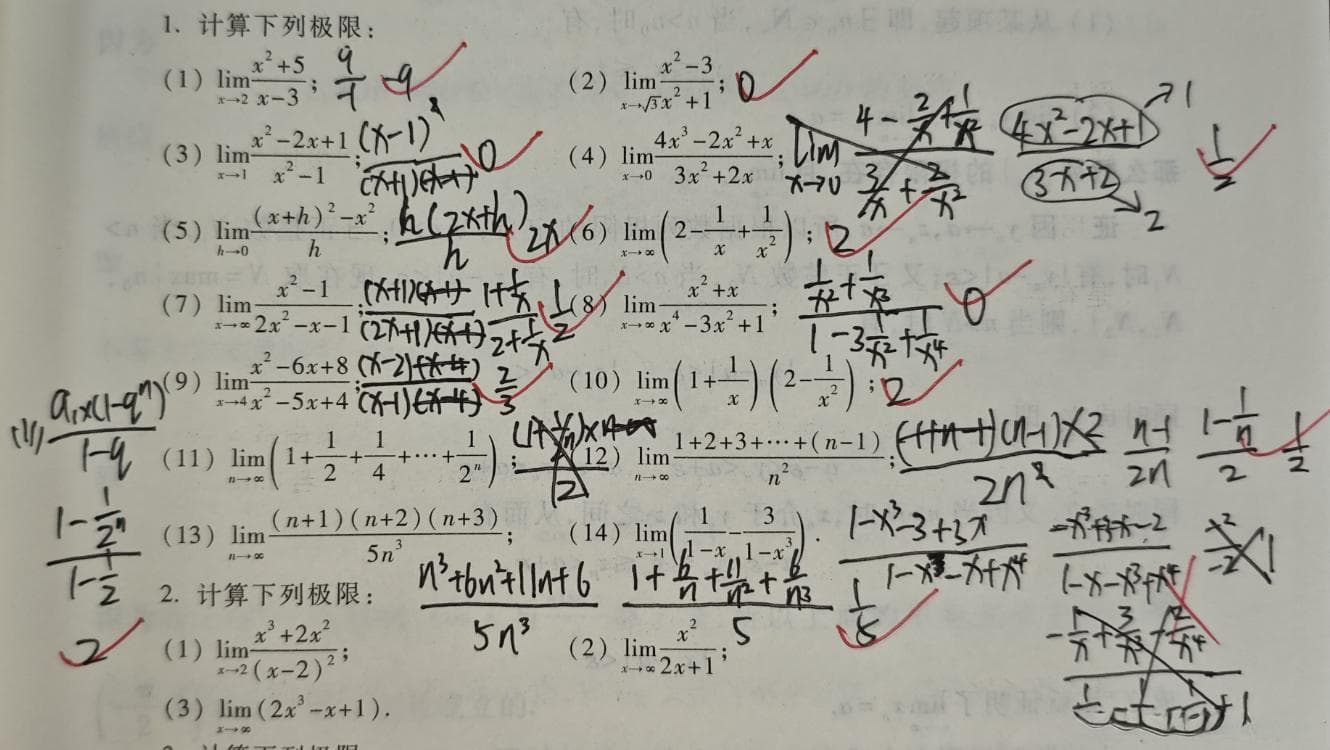 1. 计算下列极限：
(1) lim_{x→2} (x²+5)/(x-3); 9/-1 -9
(2) lim_{x→√3} (x²-3)/(x²+1); 0
(3) lim_{x→1} (x²-2x+1)/(x²-1); (x-1)²/((x+1)(x-1)) 0
(4) lim_{x→0} (4x³-2x²+x)/(3x²+2x); lim_{x→0} (4-2/x+1/x²)/(3/x+2/x²) (4x²-2x+1)/(3x+2) →1 →2 1/2
(5) lim_{h→0} ((x+h)²-x²)/h; h(2x+h)/h 2x
(6) lim_{x→∞} (2-1/x+1/x²); 2
(7) lim_{x→∞} (x²-1)/(2x²-x-1); (x+1)(x-1)/((2x+1)(x-1)) (1+1/x)/(2+1/x) 1/2
(8) lim_{x→∞} (x²+x)/(x⁴-3x²+1); (1/x²+1/x³)/(1-3 1/x²+1/x⁴) 0
(9) lim_{x→4} (x²-6x+8)/(x²-5x+4); (x-2)(x-4)/((x-1)(x-4)) 2/3
(10) lim_{x→∞} (1+1/x)(2-1/x²); 2
(11) a₁×(1-qⁿ)/(1-q)
(11) lim_{n→∞} (1+1/2+1/4+⋯+1/2ⁿ);
(1-1/2ⁿ)/(1-1/2)
2
(12) lim_{n→∞} (1+2+3+⋯+(n-1))/n²; (1+n-1)(n-1)/2n² (n-1)/2n (1-1/n)/2 1/2
(13) lim_{n→∞} (n+1)(n+2)(n+3)/5n³;
(n³+6n²+11n+6)/5n³ (1+6/n+11/n²+6/n³)/5 1/5
(14) lim_{x→1} (1/(1-x)-3/(1-x³)). (1-x³-3+3x)/(1-x³-x+x⁴) (-x³+3x-2)/(1-x-x³+x⁴)
2. 计算下列极限：
(1) lim_{x→2} (x³+2x²)/(x-2)²;
(2) lim_{x→∞} x²/(2x+1);
(3) lim_{x→∞} (2x³-x+1).